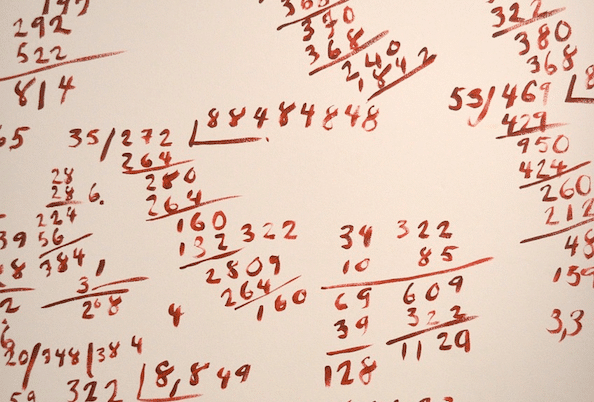 292
522
814
370
368
240
1842
322
380
368
53/469
429
950
424
260
212
48
159
3,3
65
35/272 88484848
264
280
264
160
132 322
2809
264
160
28
28 6.
224
56
384
31
268
4
34 322
10 85
69 609
39 322
128 1129
20/348/384
322 8,849